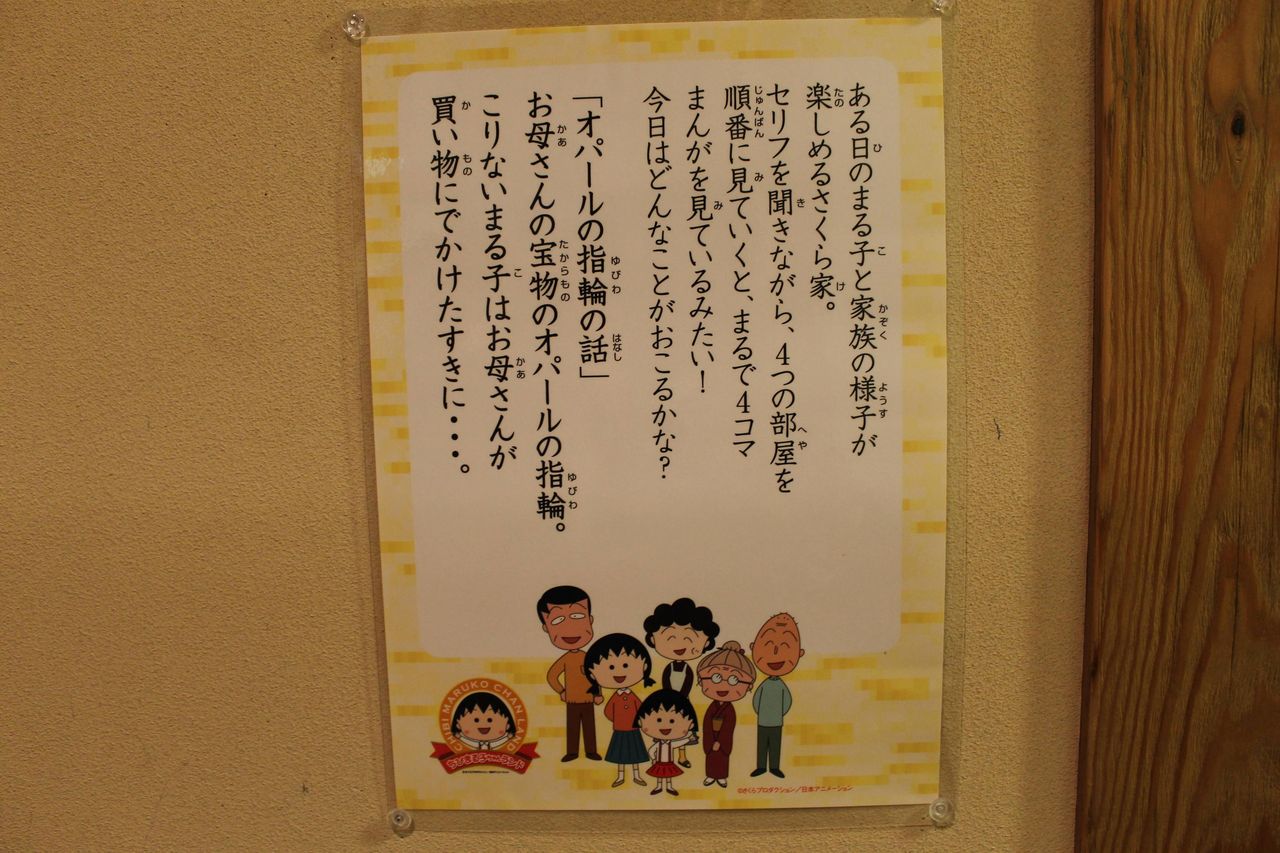 ある日のまる子と家族の様子が
楽しめるさくら家。
セリフを聞きながら、4つの部屋を
順番に見ていくと、まるで4コマ
まんがを見ているみたい！
今日はどんなことがおこるかな？
「オパールの指輪の話」
お母さんの宝物のオパールの指輪。
こりないまる子はお母さんが
買い物にでかけたすきに・・・。
CHIBI MARUKO CHAN LAND
ちびまる子ちゃんランド
©さくらプロダクション／日本アニメーション